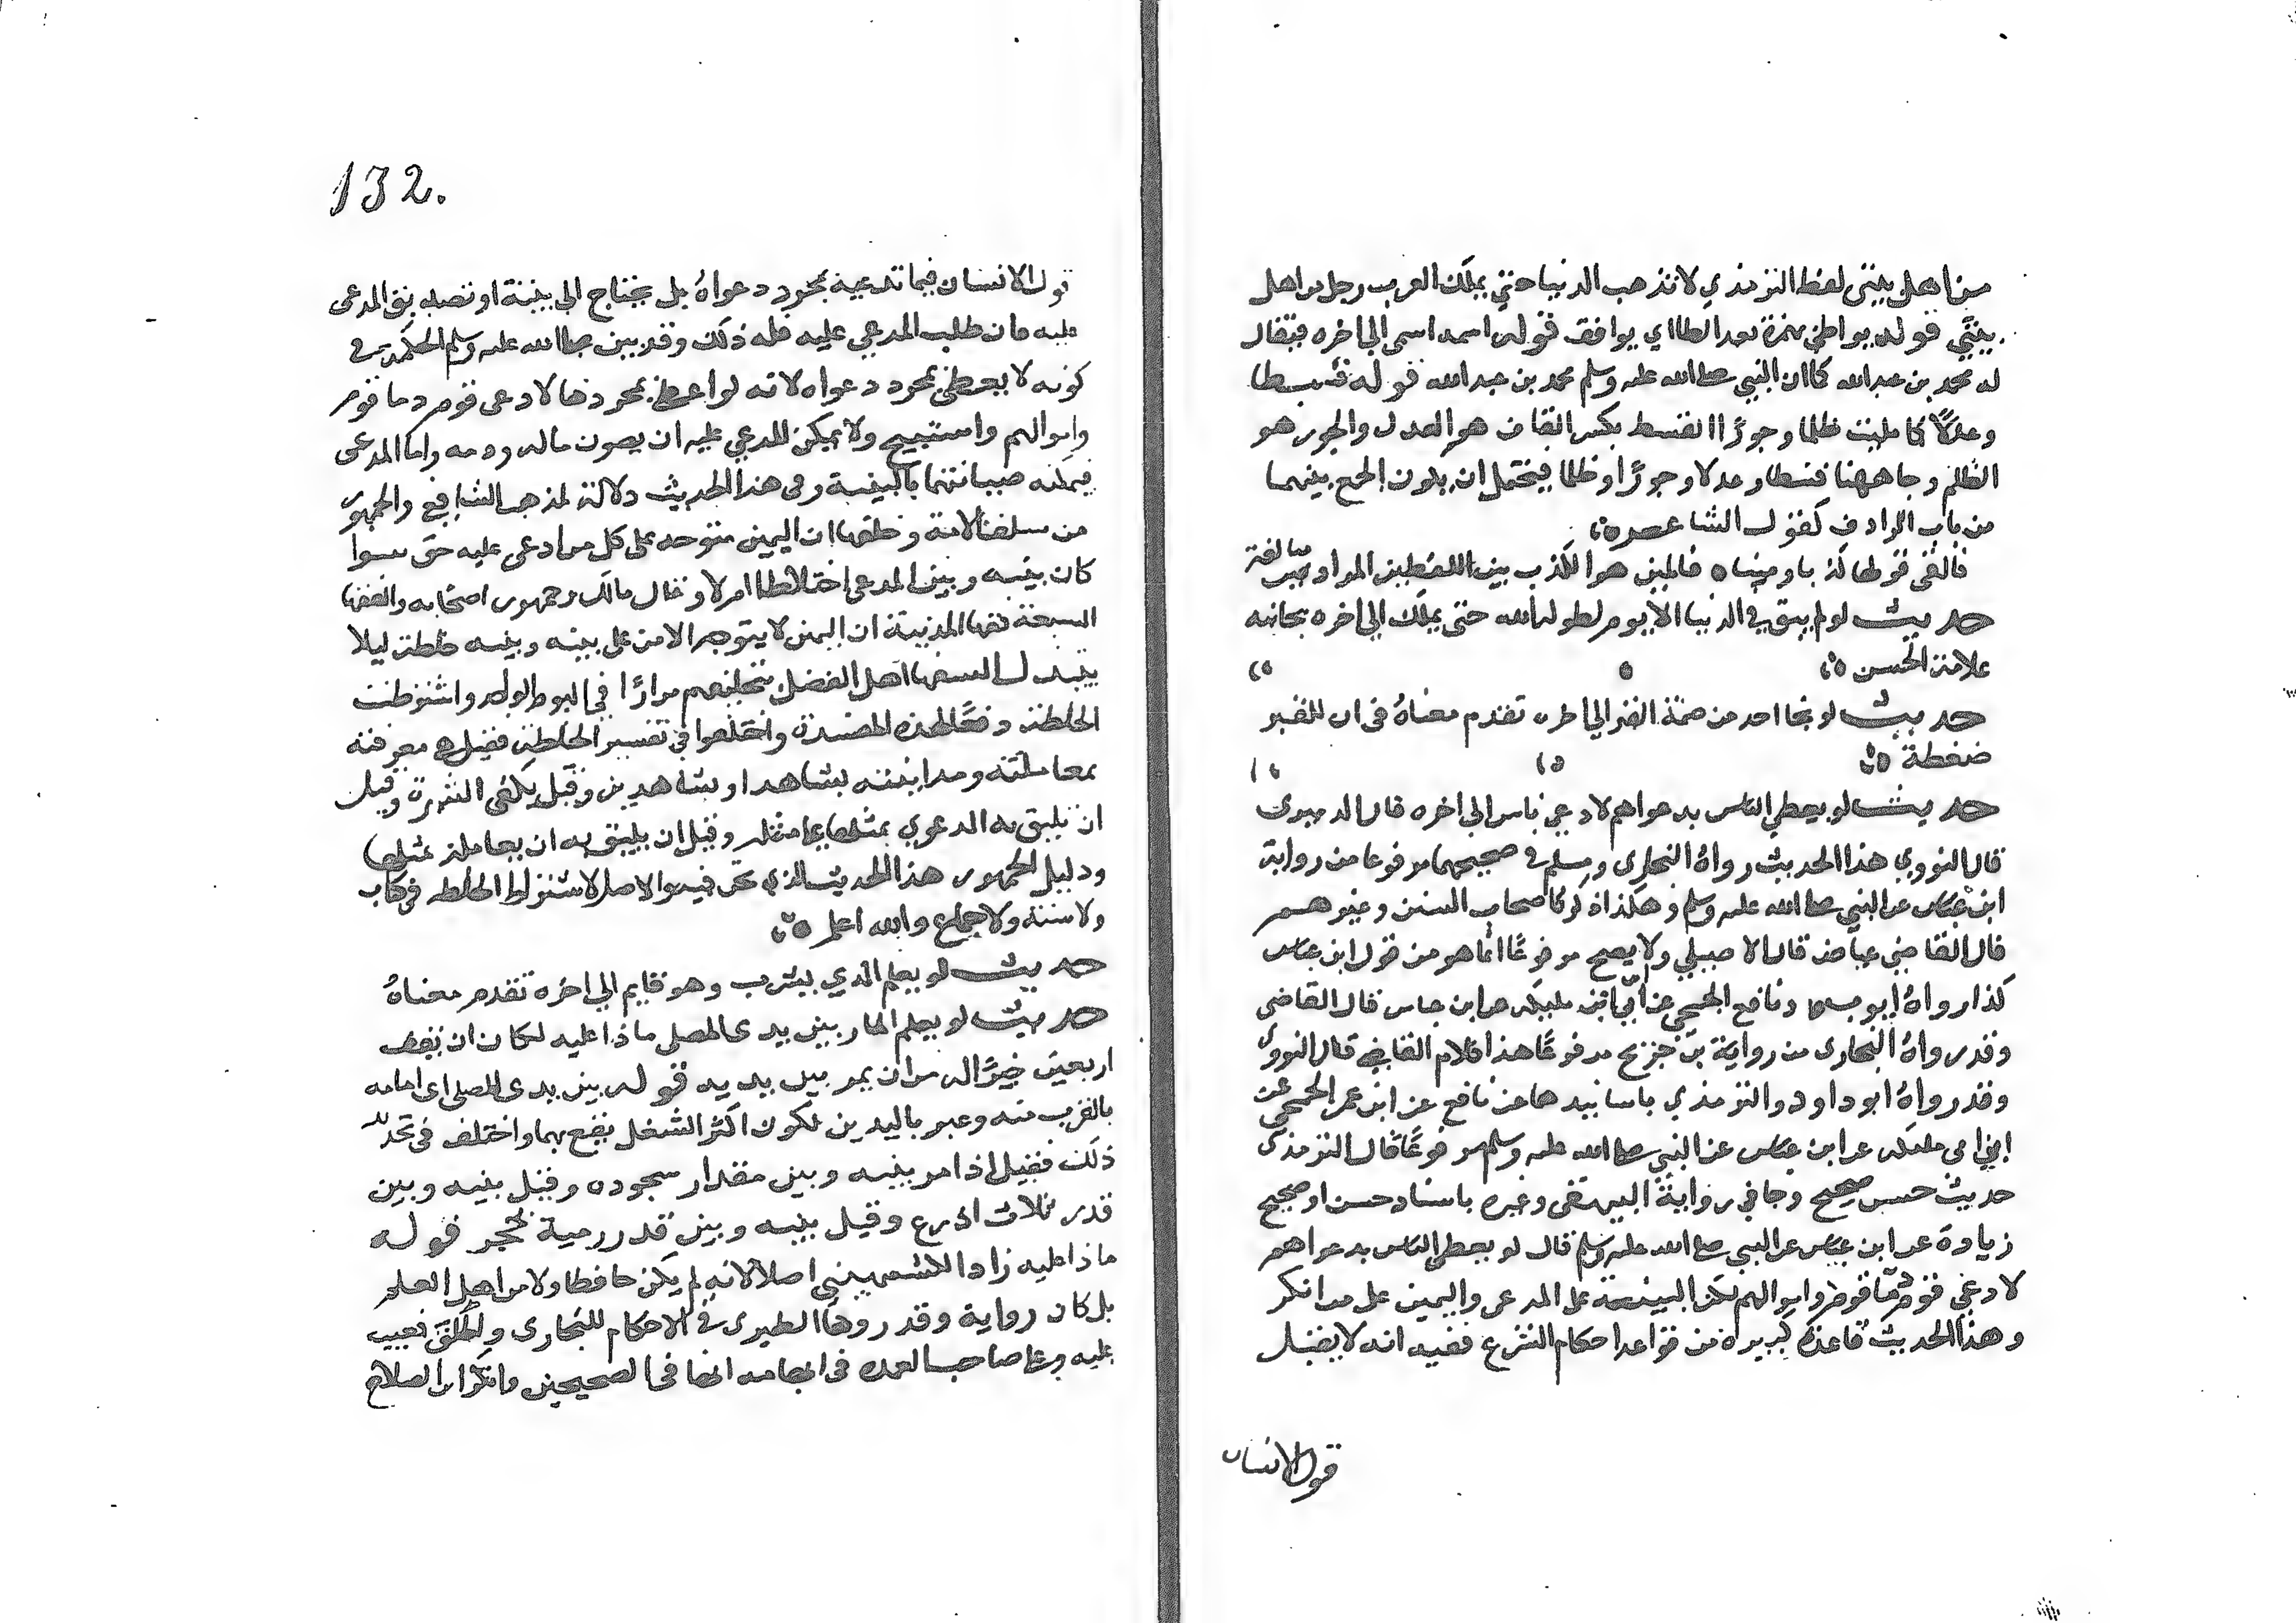 من اهل بيتي لفظ الترمذي لا تذهب الدنيا حتي يملك العرب رجل من اهل
بيتي قوله يواطئ بهمزة بعد الطا اي يوافق قوله اسمه اسمي الي اخره فيقال
له محمد بن عبدالله كما ان النبي صلى الله عليه وسلم محمد بن عبدالله قوله قسطا
وعدلًا كما ملئت ظلما وجورًا القسط بكسر القاف هو العدل والجور هو
الظلم وجا ههنا قسطا وعدلا وجورًا وظلما فيحتمل ان يكون الجمع بينهما
من باب الرادف كقول الشاعر
فالفى قولها كذبا ومينا فالمين هو الكذب بين اللفظين المراد مبالغة
حديث لو لم يبق في الدنيا الا يوم لطوله الله حتى يملك الي اخره بجانبه
علامة الحسن
حديث لو نجا احد من ضمة القبر الي اخره تقدم معناهُ في ان للقبر
ضغطة
حديث لو يعطي الناس بدعواهم لادعي ناس الي اخره قال الدميري
قال النووي هذا الحديث رواهُ البخاري ومسلم في صحيحهما مرفوعا من رواية
ابن عباس عن النبي صلى الله عليه وسلم وهكذا ذكره اصحاب السنن وغيرهم
قال القاضي عياض قال الاصيلي ولا يصح مرفوعًا انما هو من قول ابن عباس
كذا رواهُ ايوب ونافع الجمحي عن ابي ابن مليكه عن ابن عباس قال القاضي
وقد رواهُ البخاري من رواية بن جريج مرفوعًا هذا كلام القاضي قال النووي
وقد رواهُ ابو داود والترمذي باسانيدهما عن نافع عن ابن عمر الجمحي عن
ابن ابي مليكه عن ابن عباس عن النبي صلى الله عليه وسلم مرفوعًا قال الترمذي
حديث حسن صحيح وجا في رواية البيهقي وغيره باسناد حسن او صحيح
زيادة عن ابن عباس عن النبي صلى الله عليه وسلم قال لو يعطى الناس بدعواهم
لادعي قوم دما قوم واموالهم لكن البينة على المدعي واليمين على من انكر
وهذا الحديث قاعدة كبيرة من قواعد احكام الشرع ففيه انه لا يقبل
قول الانسان
132.
قول الانسان فيما تدعيه بمجرد دعواهُ بل يحتاج الي بينة او تصديق المدعى
عليه فان طلب المدعي عليه فله ذلك وقد بين صلى الله عليه وسلم الحكمة في
كونه لا يعطى بمجرد دعواه لانه لو اعطى بمجردها لادعى قوم دما قوم
واموالهم واستبيح ولا يمكن المدعي عليه ان يصون ماله ودمه واما المدعى
فيمكنه صيانتهما بالبينة وفي هذا الحديث دلالة لمذهب الشافعي والجمهور
من سلف الامة وخلفها ان اليمين متوجه على كل من ادعى عليه حق سوا
كان بينه وبين المدعي اختلاطا ام لا وقال مالك وجمهور اصحابه والفقها
السبعة فقها المدنية ان اليمين لا يتوجه الا من على بينه وبينه خلطة ليلا
يبتدل السفها اهل الفضل بتحليفهم مرارًا في اليوم الواحد واشترطت
الخلطة دفعًا لهذه المفسدة واختلفوا في تفسير الخلطة فقيل هي معرفته
بمعاملته ومداينته بشاهد او بشاهدين وقيل يكفي الشهرة وقيل
ان يليق به الدعوي بمثلها على مثله وقيل ان يليق به ان يعامله بمثلها
ودليل الجمهور هذا الحديث الذي نحن فيه ولا اصل لاشتراط الخلطه في كتاب
ولا سنة ولا اجماع والله اعلم
حديث لو يعلم الذي يشرب وهو قايم الي اخره تقدم معناهُ
حديث لو يعلم المار بين يدي المصلي ماذا عليه لكان ان يقف
اربعين خيرًا له من ان يمر بين يديه قوله بين يدي المصلي اي امامه
بالقرب منه وعبر باليدين لكون اكثر الشغل يقع بهما واختلف في تحديد
ذلك فقيل اذا مر بينه وبين مقدار سجوده وقيل بينه وبين
قدر ثلاث اذرع وقيل بينه وبين قدر رمية بحجر قوله
ماذا عليه زاد الكشميهني اصلا لانه لم يكن حافظا ولا من اهل العلم
بل كان رواية وقد رواها الطبري في الاحكام للبخاري واطلق فعيب
عليه وعلى صاحب العمده في ايهامه انها في الصحيحين وانكر ابن الصلاح